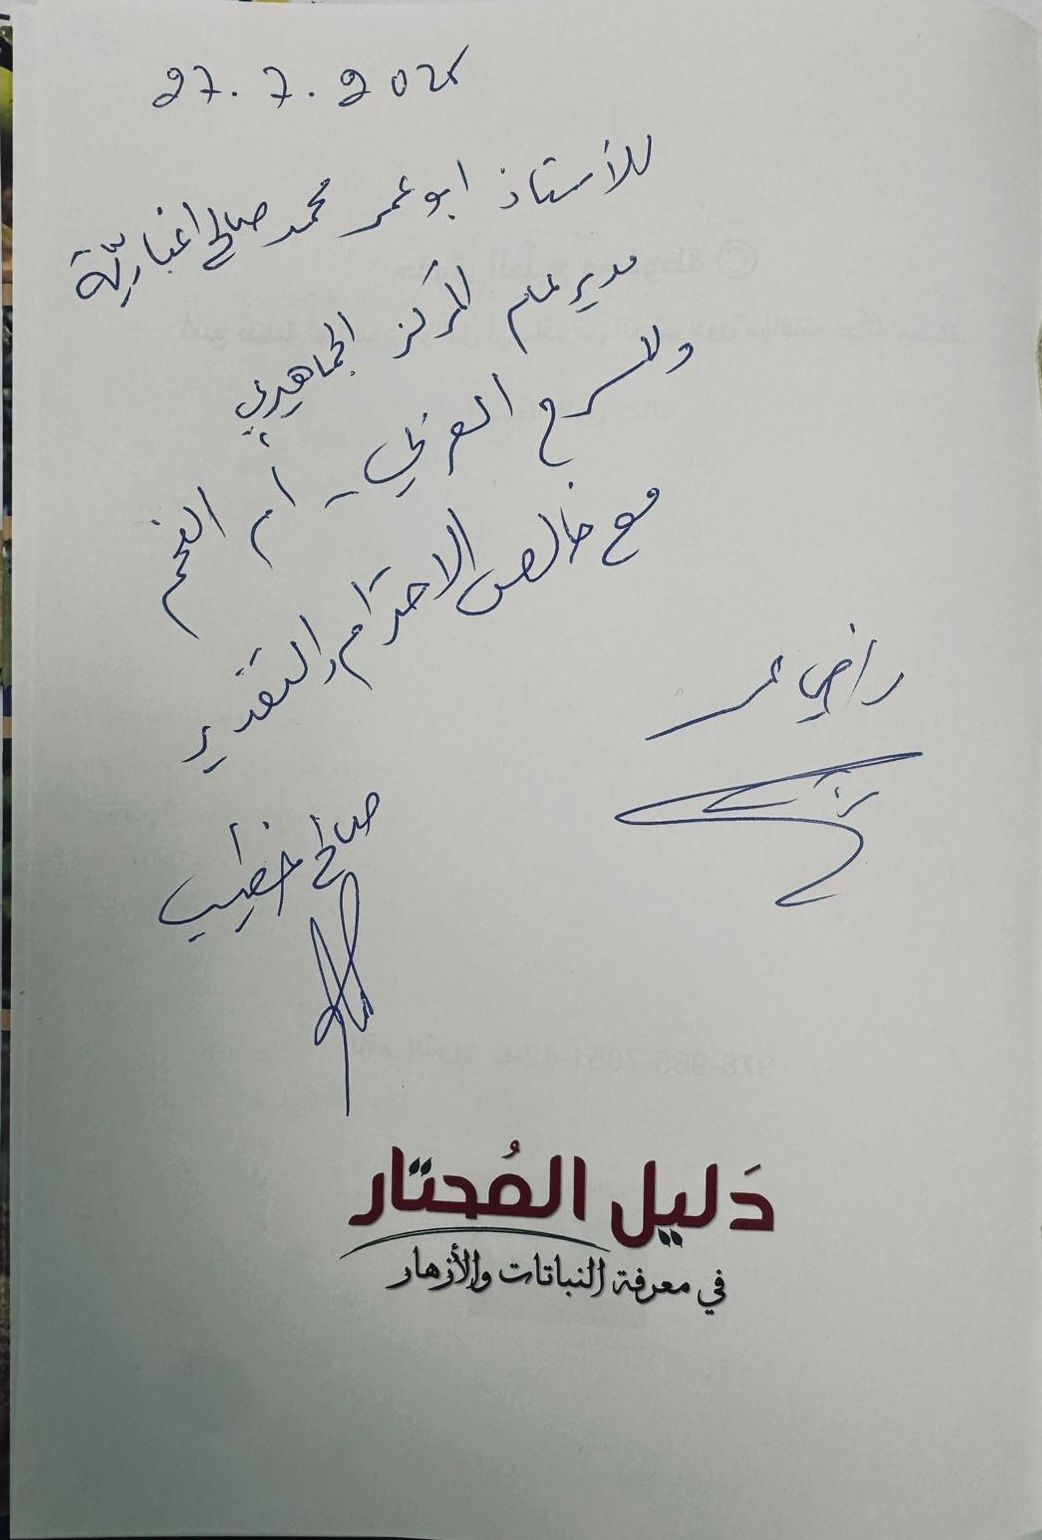 للأستاذ ابو عمر محمد صالح اغباريّة
مدير عام المركز الجماهيري
والمسرح العربي - أم الفحم
مع خالص الاحترام والتقدير
راضي عمر
صالح خطيب
دَليل المُحتار
في معرفة النباتات والأزهار